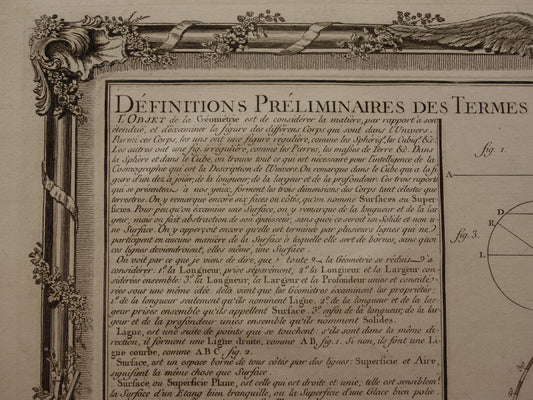 DÉFINITIONS PRÉLIMINAIRES DES TERMES
L'OBJET de la Géométrie est de considerer la matière, par rapport a son
étendüe, et d'éxaminer la figure des différens Corps qui sont dans l'Univers.
Parmi ces Corps, les uns ont une figure régulière, comme les Spheres, les Cubes, &c.
Les autres ont une fig. irrégulière, comme les Pierres, les masses de Terre &c. Dans
la Sphére et dans le Cube, on trouve tout ce qui est necessaire pour l'intelligence de la
Cosmographie qui est la Description de l'Univers. On remarque dans le Cube qui a la fi-
gure d'un dez à jouer, de la longueur, de la largeur et de la profondeur. Ces trois raports
qui se présentent à nos yeux, forment les trois dimensions des Corps tant célestes que
terrestres. On y remarque encore six faces ou côtés, qu'on nomme Surfaces ou Super-
ficies. Pour peu qu'on éxamine une Surface, on y remarque de la longueur et de la lar-
geur; mais on fait abstraction de son épaisseur, sans quoi ce seroit un Solide et non u-
ne Surface. On y apperçoit encore qu'elle est terminée par plusieurs lignes qui ne
participent en aucune manière de la Surface à laquelle elle sert de bornes, sans quoi
ces lignes deviendroient, elles même, une Surface.
On voit par ce que je viens de dire, que toute la Géométrie se réduit à
considérer: 1.º la Longueur, prise séparément; 2.º la Longueur et la Largeur con-
siderées ensemble; 3.º la Longueur, la Largeur et la Profondeur unies et considé-
rées sous une même idée. delà vient que les Géomètres éxaminent les propriétés,
1.º de la longueur seulement qu'ils nomment Ligne. 2.º de la longueur et de la lar-
geur prises ensemble qu'ils appellent Surface. 3.º enfin de la longueur, de la lar-
geur et de la profondeur unies ensemble qu'ils nomment Solides.
Ligne, est une suite de points que se touchent: s'ils sont dans la même di-
rection, il forment une Ligne droite, comme AB, fig. 1. Si non, ils font une Li-
gne courbe, comme ABC, fig. 2.
Surface, est un espace borné de tous côtés par des lignes: Superficie et Aire,
signifient la même chose que Surface.
Surface ou Superficie Plane, est celle qui est droite et unie; telle est sensiblemt.
la Surface d'un Etang bien tranquille, ou la Superficie d'une Glace bien polie.
fig. 1.
A
fig. 3.
D
R
L